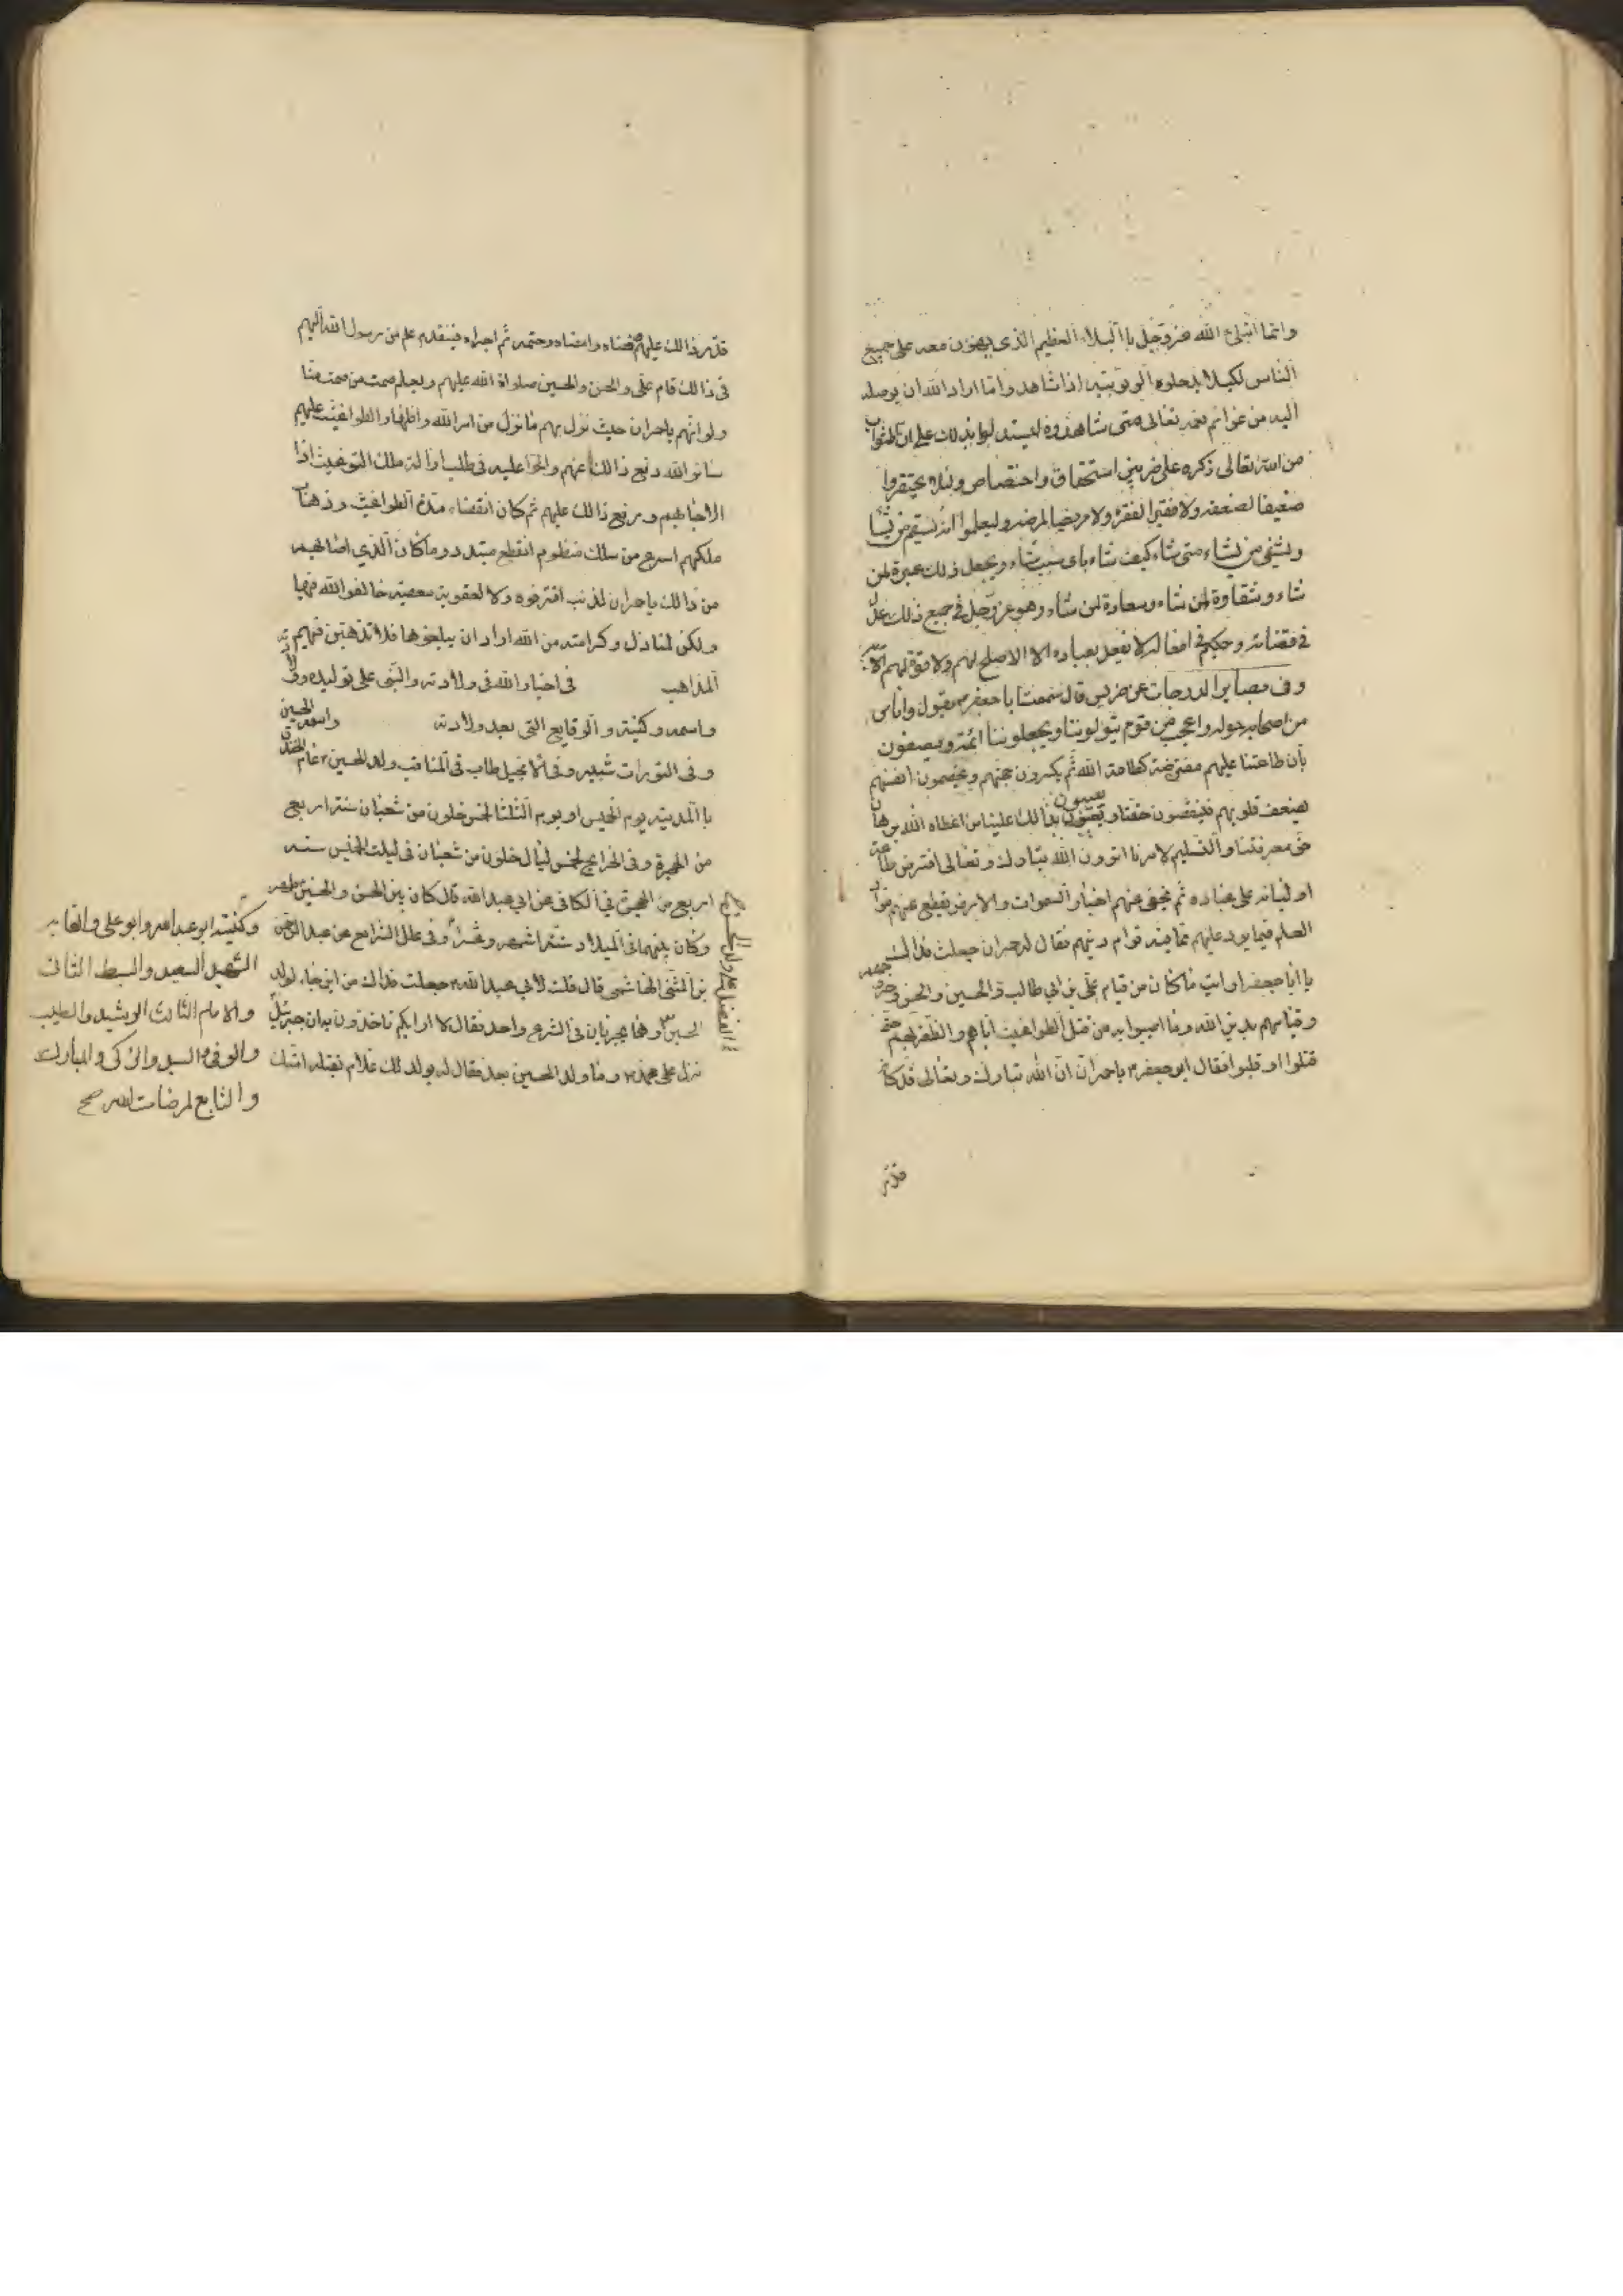 وانما ابتلاع الله عز وجل باالبلاء العظيم الذى يهون معه على جميع
الناس لكيلا يدعلوه الربوبيته اذا شاهدوا ما اراد الله ان يوصله
اليه من عزائم نعمه تعالى متى شاهدوه ليستدلوا بذلك على ان الثواب
من الله تعالى ذكره على ضربين استحقاق واختصاص ولئلا يحتقروا
ضعيفا لضعفه ولا فقيرا لفقره ولا مريضا لمرضه وليعلموا انه يسقم من يشا
ويشفى من يشاء متى شاء كيف شاء باى سبب شاء ويجعل ذلك عبرة لمن
شاء وشقاوة لمن شاء وسعادة لمن شاء وهو عز وجل فى جميع ذلك عدل
فى قضائه وحكيم فى افعاله لا يفعل بعباده الا الاصلح لهم ولا قوة لهم الا به
وفى بصاير الدرجات عن ضريس قال سمعت ابا جعفر ع يقول واناس
من اصحابه حوله واعجب من قوم يتولوننا ويجعلوننا ائمة ويصفون
بان طاعتنا عليهم مفترضة كطاعة الله ثم يكسرون حجتهم ويخصمون انفسهم
بضعف قلوبهم فينقصون حقنا ويعيبون بذالك علينا من اعطاه الله برهان
حق معرفتنا والتسليم لامرنا اترون الله تبارك وتعالى افترض طاعة
اوليائه على عباده ثم يخفى عنهم اخبار السموات والارض ويقطع عنهم مواد
العلم فيما يرد عليهم مما فيه قوام دينهم فقال له حمران جعلت فداك
يا ابا جعفر ارايت ما كان من قيام على بن ابى طالب والحسين والحسن وخروجهم
وقيامهم بدين الله وما اصيبوا به من قتل الطواغيت اياهم والظفر بهم حتى
قتلوا او غلبوا فقال ابو جعفر ع يا حمران ان الله تبارك وتعالى قد كان
قدر
قدر ذالك عليهم وقضاه وامضاه وحتمه ثم اجراه فبتقدم علم من رسول الله اليهم
فى ذالك قام على والحسن والحسين صلواة الله عليهم وبعلم صمت من صمت منا
ولو انهم يا حمران حيث نزل بهم ما نزل من امر الله واظهار الطواغيت عليهم
سالوا الله دفع ذالك عنهم والحوا عليه فى طلب ازالة ملك الطواغيت اذا
لاجابهم ورفع ذالك عليهم ثم كان انقضاء مدة الطواغيت وذهاب
ملكهم اسرع من سلك منظوم انقطع متبدد وما كان الذي اصابهم
من ذالك يا حمران لذنب اقترفوه ولا لعقوبة معصية خالفوا الله فيها
ولكن لمنازل وكرامته من الله اراد ان يبلغوها فلا تذهبن فيهم
المذاهب فى اخبار الله فى ولادته والنبى على توليده
واسمه وكنيته والوقايع التى بعد ولادته واسمه الحسين
وفى التورات شبير وفى الانجيل طاب فى المناقب ولد الحسين ع عام الخندق
باالمدينة يوم الخميس او يوم الثلثا لخمس خلون من شعبان سنة اربع
من الهجرة وفى الخرايج لخمس ليال خلون من شعبان فى ليلة الخميس سنه
اربع من الهجرة فى الكافى عن ابي عبد الله قال كان بين الحسن والحسين طهر
وكان بينهما فى الميلاد ستة اشهر وعشرا وفى علل الشرايع عن عبد الرحمن
بن المثنى الهاشمى قال قلت لأبي عبد الله ع جعلت فداك من اين جاء لولد
الحسين الفضل على ولد الحسن وهما يجريان فى الشرع واحد فقال لا اراكم تاخذون به ان جبرئيل
نزل على محمد ص وما ولد الحسين بعد فقال له يولد لك غلام تقتله امتك
وكنيته ابو عبد الله وابو على والقابه
الشهيد السعيد والسبط الثانى
والامام الثالث الرشيد والطيب
والوفى والسيد والزكى والمبارك
والتابع لمرضات الله صح